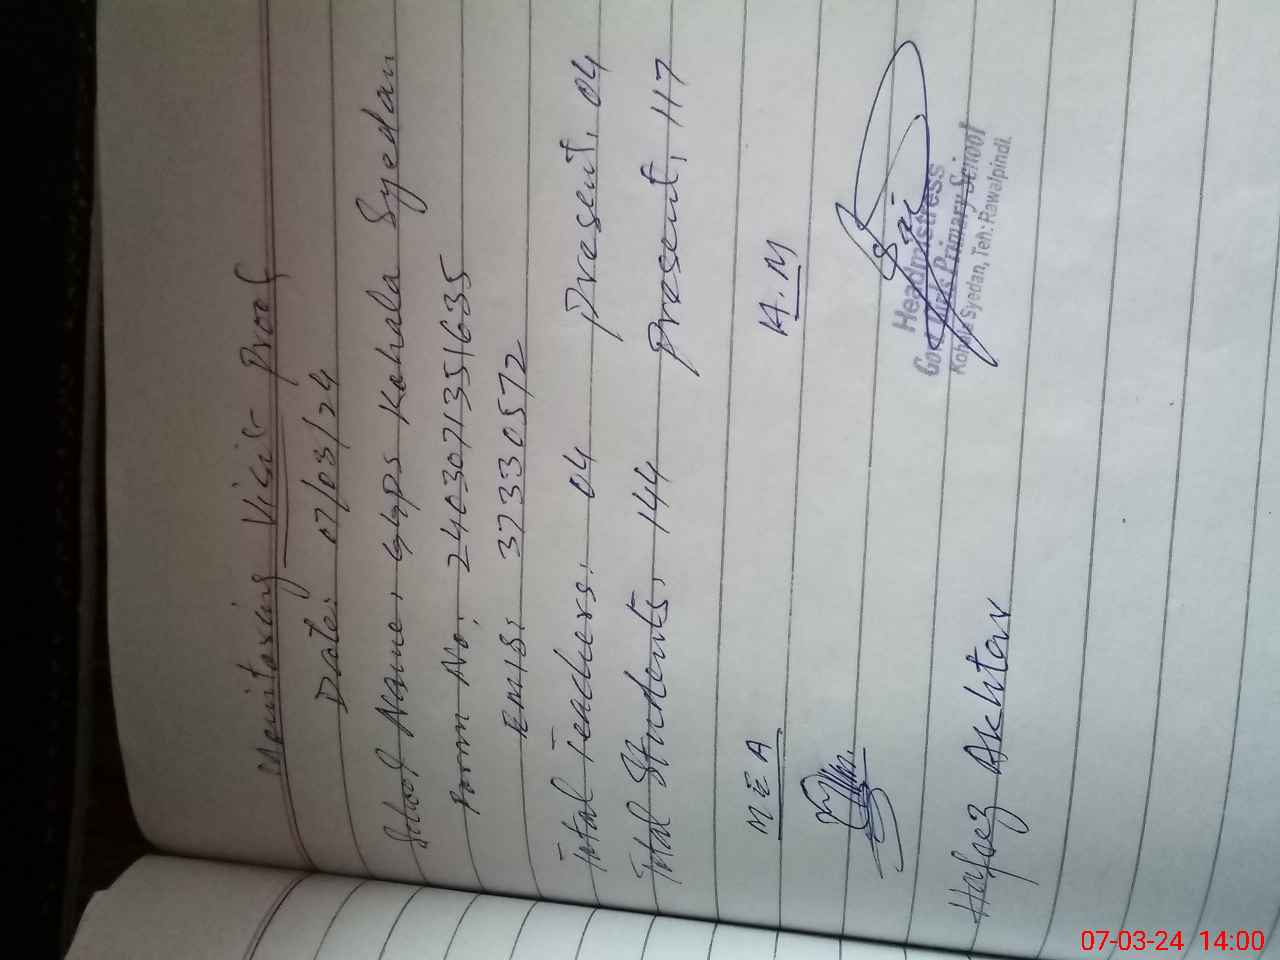 Monitoring Visit Proof
Date: 07/03/24
School Name: GGPS Kohala Syedan
Form No: 2403071351635
EMIS: 37330572
Total Teachers: 04 Present: 04
Total Students: 144 Present: 117
MEA H.M
Headmistress
Govt Girls Primary School
Kohala Syedan, Teh: Rawalpindi.
Hafeez Akhtar
07-03-24 14:00